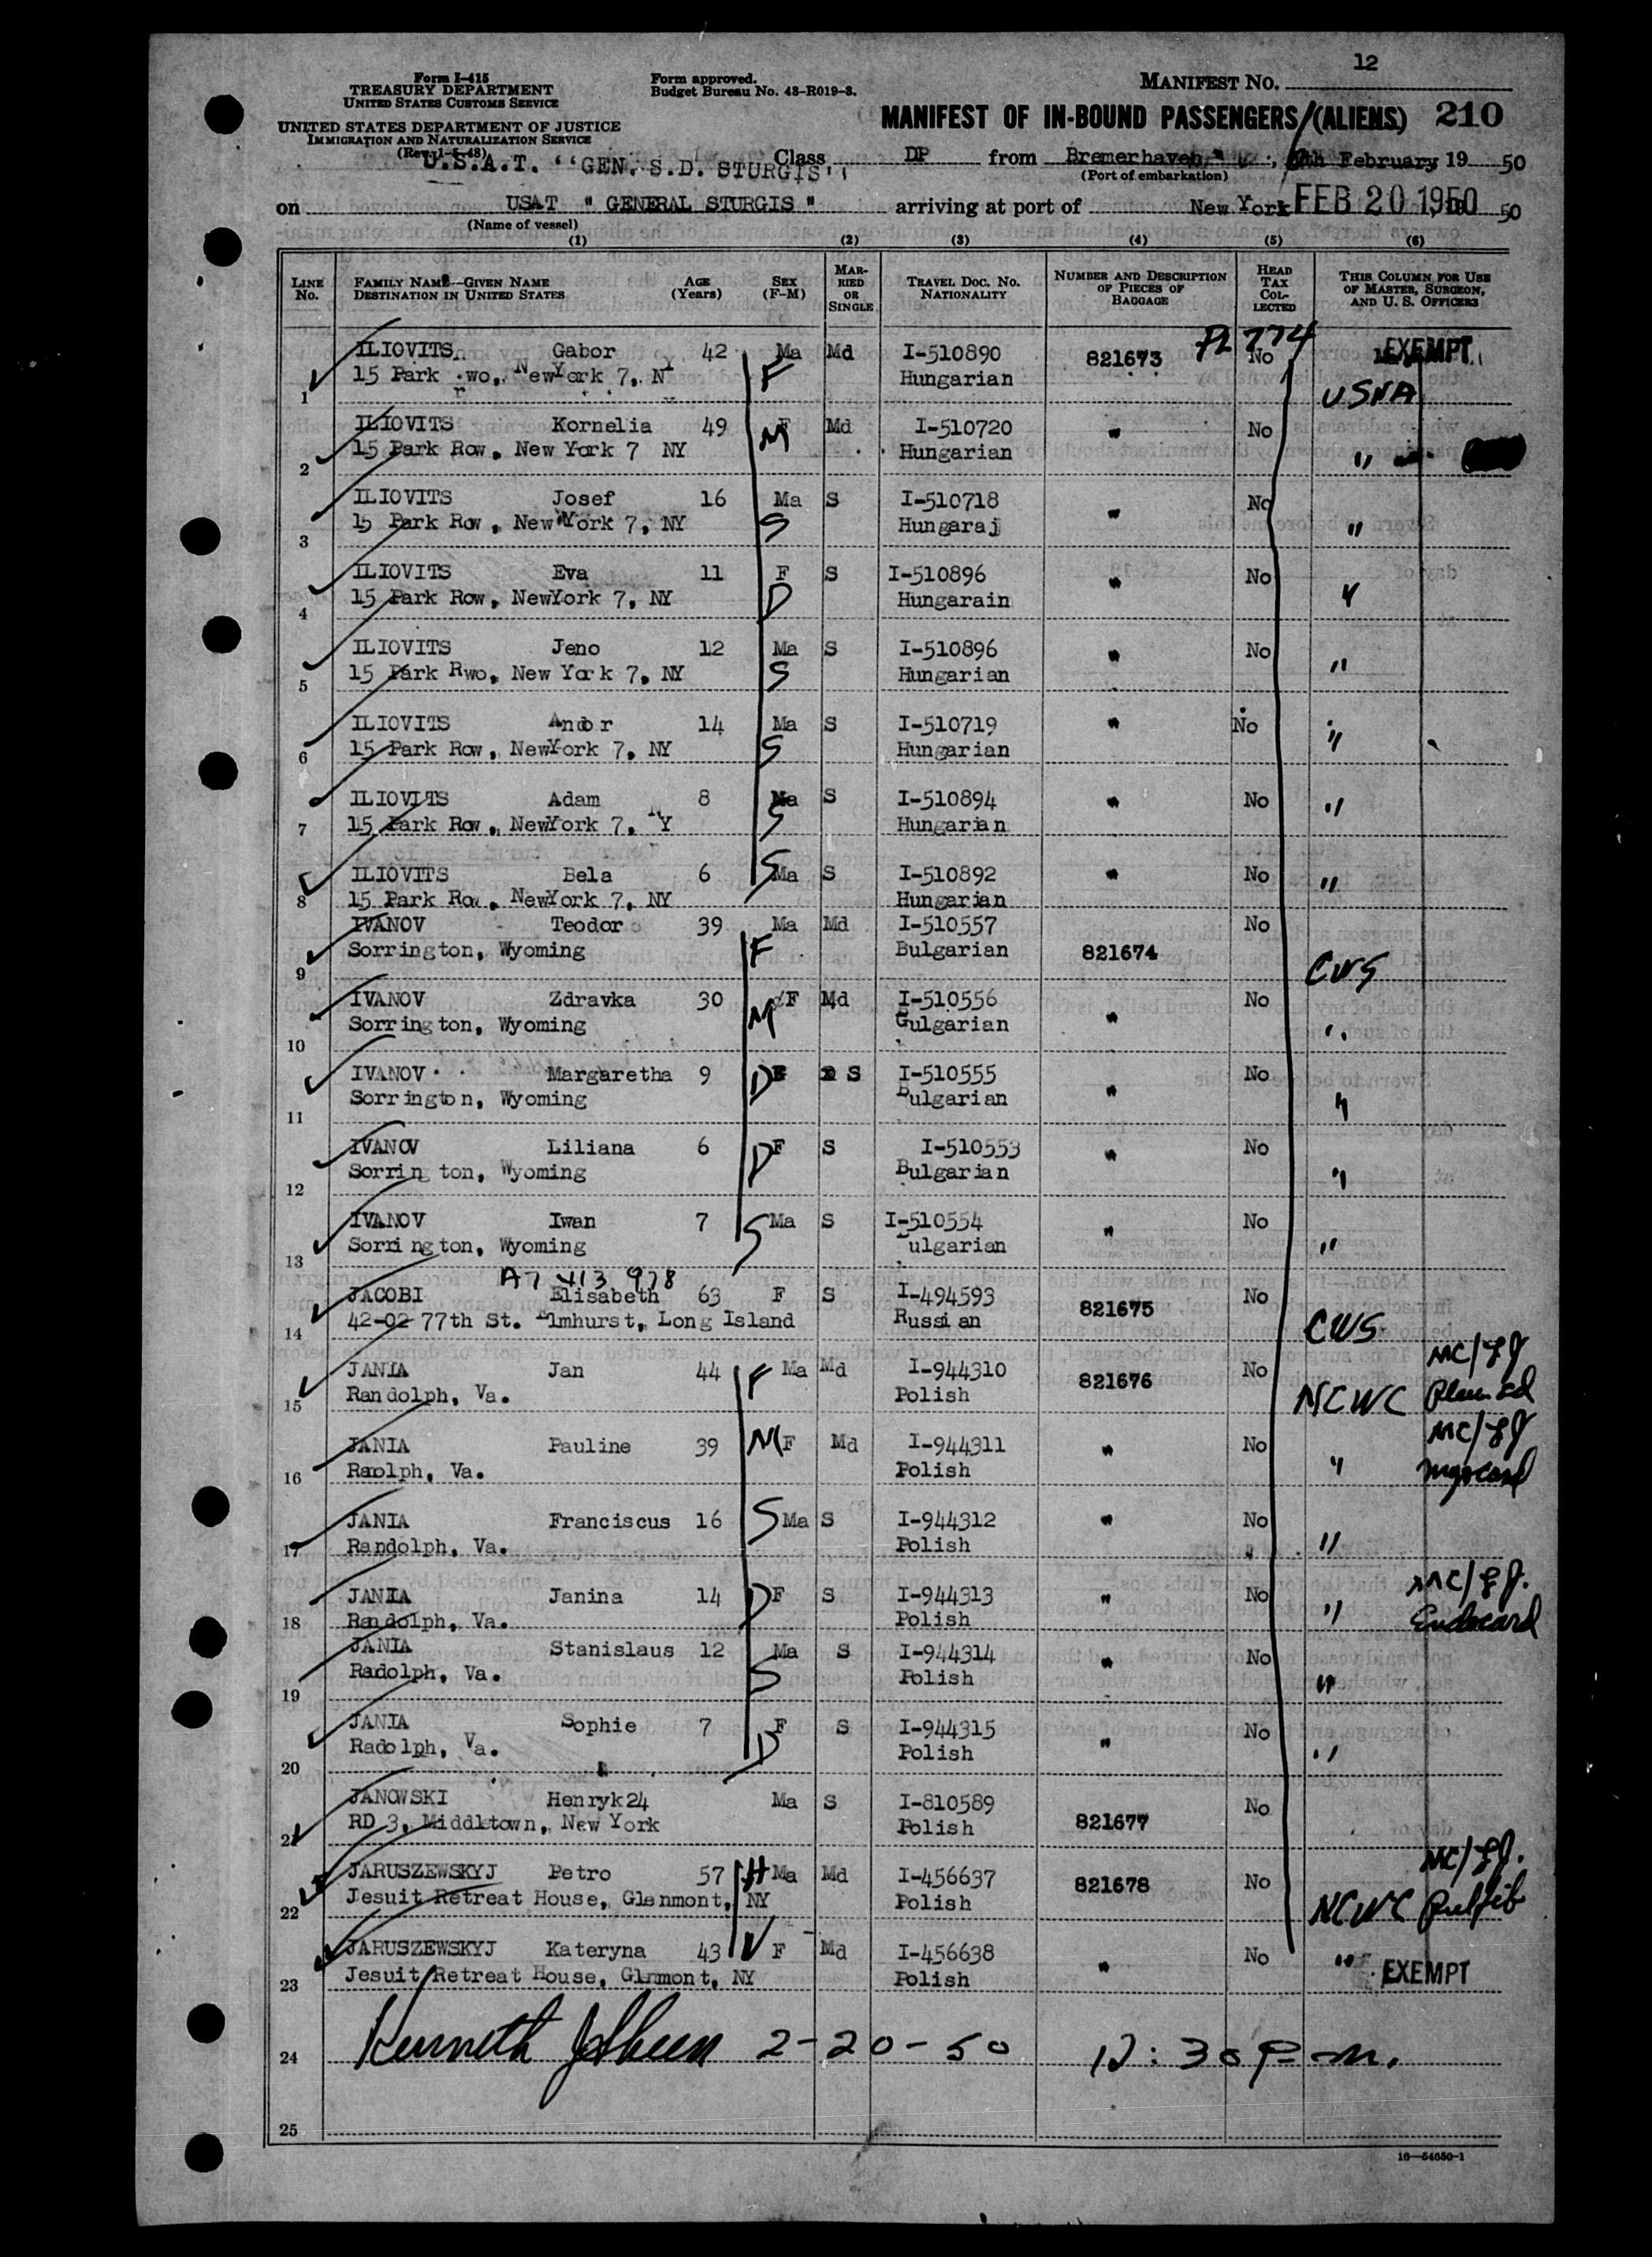 12
Form I-415
TREASURY DEPARTMENT
UNITED STATES CUSTOMS SERVICE
Form approved.
Budget Bureau No. 43-R019-3.
MANIFEST NO.
UNITED STATES DEPARTMENT OF JUSTICE
IMMIGRATION AND NATURALIZATION SERVICE
(Rev. 1-5-48)
MANIFEST OF IN-BOUND PASSENGERS (ALIENS) 210
U.S.A.T. "GEN. S.D. STURGIS" Class DP from Bremerhaven, February 19 50
(Port of embarkation)
on USAT " GENERAL STURGIS " arriving at port of New York FEB 20 1950 50
(Name of vessel)
(1) (2) (3) (4) (5) (6)
LINE No. FAMILY NAME—GIVEN NAME DESTINATION IN UNITED STATES AGE (Years) SEX (F-M) MARRIED OR SINGLE TRAVEL DOC. NO. NATIONALITY NUMBER AND DESCRIPTION OF PIECES OF BAGGAGE HEAD TAX COLLECTED THIS COLUMN FOR USE OF MASTER, SURGEON, AND U. S. OFFICERS
PL 774
ILIOVITS Gabor 42 Ma Md I-510890 821673 No EXEMPT
1 15 Park rwo, NewYork 7, NY F Hungarian USNA
ILIOVITS Kornelia 49 F M Md I-510720 " No
2 15 Park Row, New York 7 NY Hungarian "
ILIOVITS Josef 16 Ma S I-510718 " No
3 15 Park Row, New York 7, NY S Hungaraj "
ILIOVITS Eva 11 F S I-510896 " No
4 15 Park Row, NewYork 7, NY D Hungarain "
ILIOVITS Jeno 12 Ma S I-510896 " No
5 15 Park Rwo, New York 7, NY S Hungarian "
ILIOVITS Andor 14 Ma S I-510719 " No
6 15 Park Row, NewYork 7, NY S Hungarian "
ILIOVITS Adam 8 Ma S I-510894 " No
7 15 Park Row, NewYork 7, NY S Hungarian "
ILIOVITS Bela 6 S Ma S I-510892 " No
8 15 Park Row, NewYork 7, NY Hungarian "
IVANOV Teodor 39 Ma Md I-510557 No
9 Sorrington, Wyoming F Bulgarian 821674 CWS
IVANOV Zdravka 30 M F Md I-510556 " No
10 Sorrington, Wyoming Gulgarian "
IVANOV Margaretha 9 D F S I-510555 " No
11 Sorrington, Wyoming Bulgarian "
IVANOV Liliana 6 D F S I-510553 " No
12 Sorrin ton, Wyoming Bulgarian "
IVANOV Iwan 7 S Ma S I-510554 " No
13 Sorrington, Wyoming ulgarian "
A7 413 978
JACOBI Elisabeth 63 F S I-494593 821675 No
14 42-02 77th St. Elmhurst, Long Island Russian CWS
JANIA Jan 44 F Ma Md I-944310 821676 No MC/
15 Randolph, Va. Polish NCWC
JANIA Pauline 39 M F Md I-944311 " No MC/
16 Raolph, Va. Polish "
JANIA Franciscus 16 S Ma S I-944312 " No
17 Randolph, Va. Polish "
JANIA Janina 14 D F S I-944313 " No MC/
18 Randolph, Va. Polish " Endocard
JANIA Stanislaus 12 Ma S I-944314 " No
19 Radolph, Va. S Polish "
JANIA Sophie 7 F S I-944315 " No
20 Radolph, Va. D Polish "
JANOWSKI Henryk 24 Ma S I-810589 No
21 RD 3, Middltown, New York Polish 821677
JARUSZEWSKYJ Petro 57 H Ma Md I-456637 821678 No MC/
22 Jesuit Retreat House, Glenmont, NY Polish NCWC
JARUSZEWSKYJ Kateryna 43 W F Md I-456638 " No "
23 Jesuit Retreat House, Glnmont, NY Polish EXEMPT
24 Kenneth 2-20-50 12:30 P.m.
25
16—54650-1